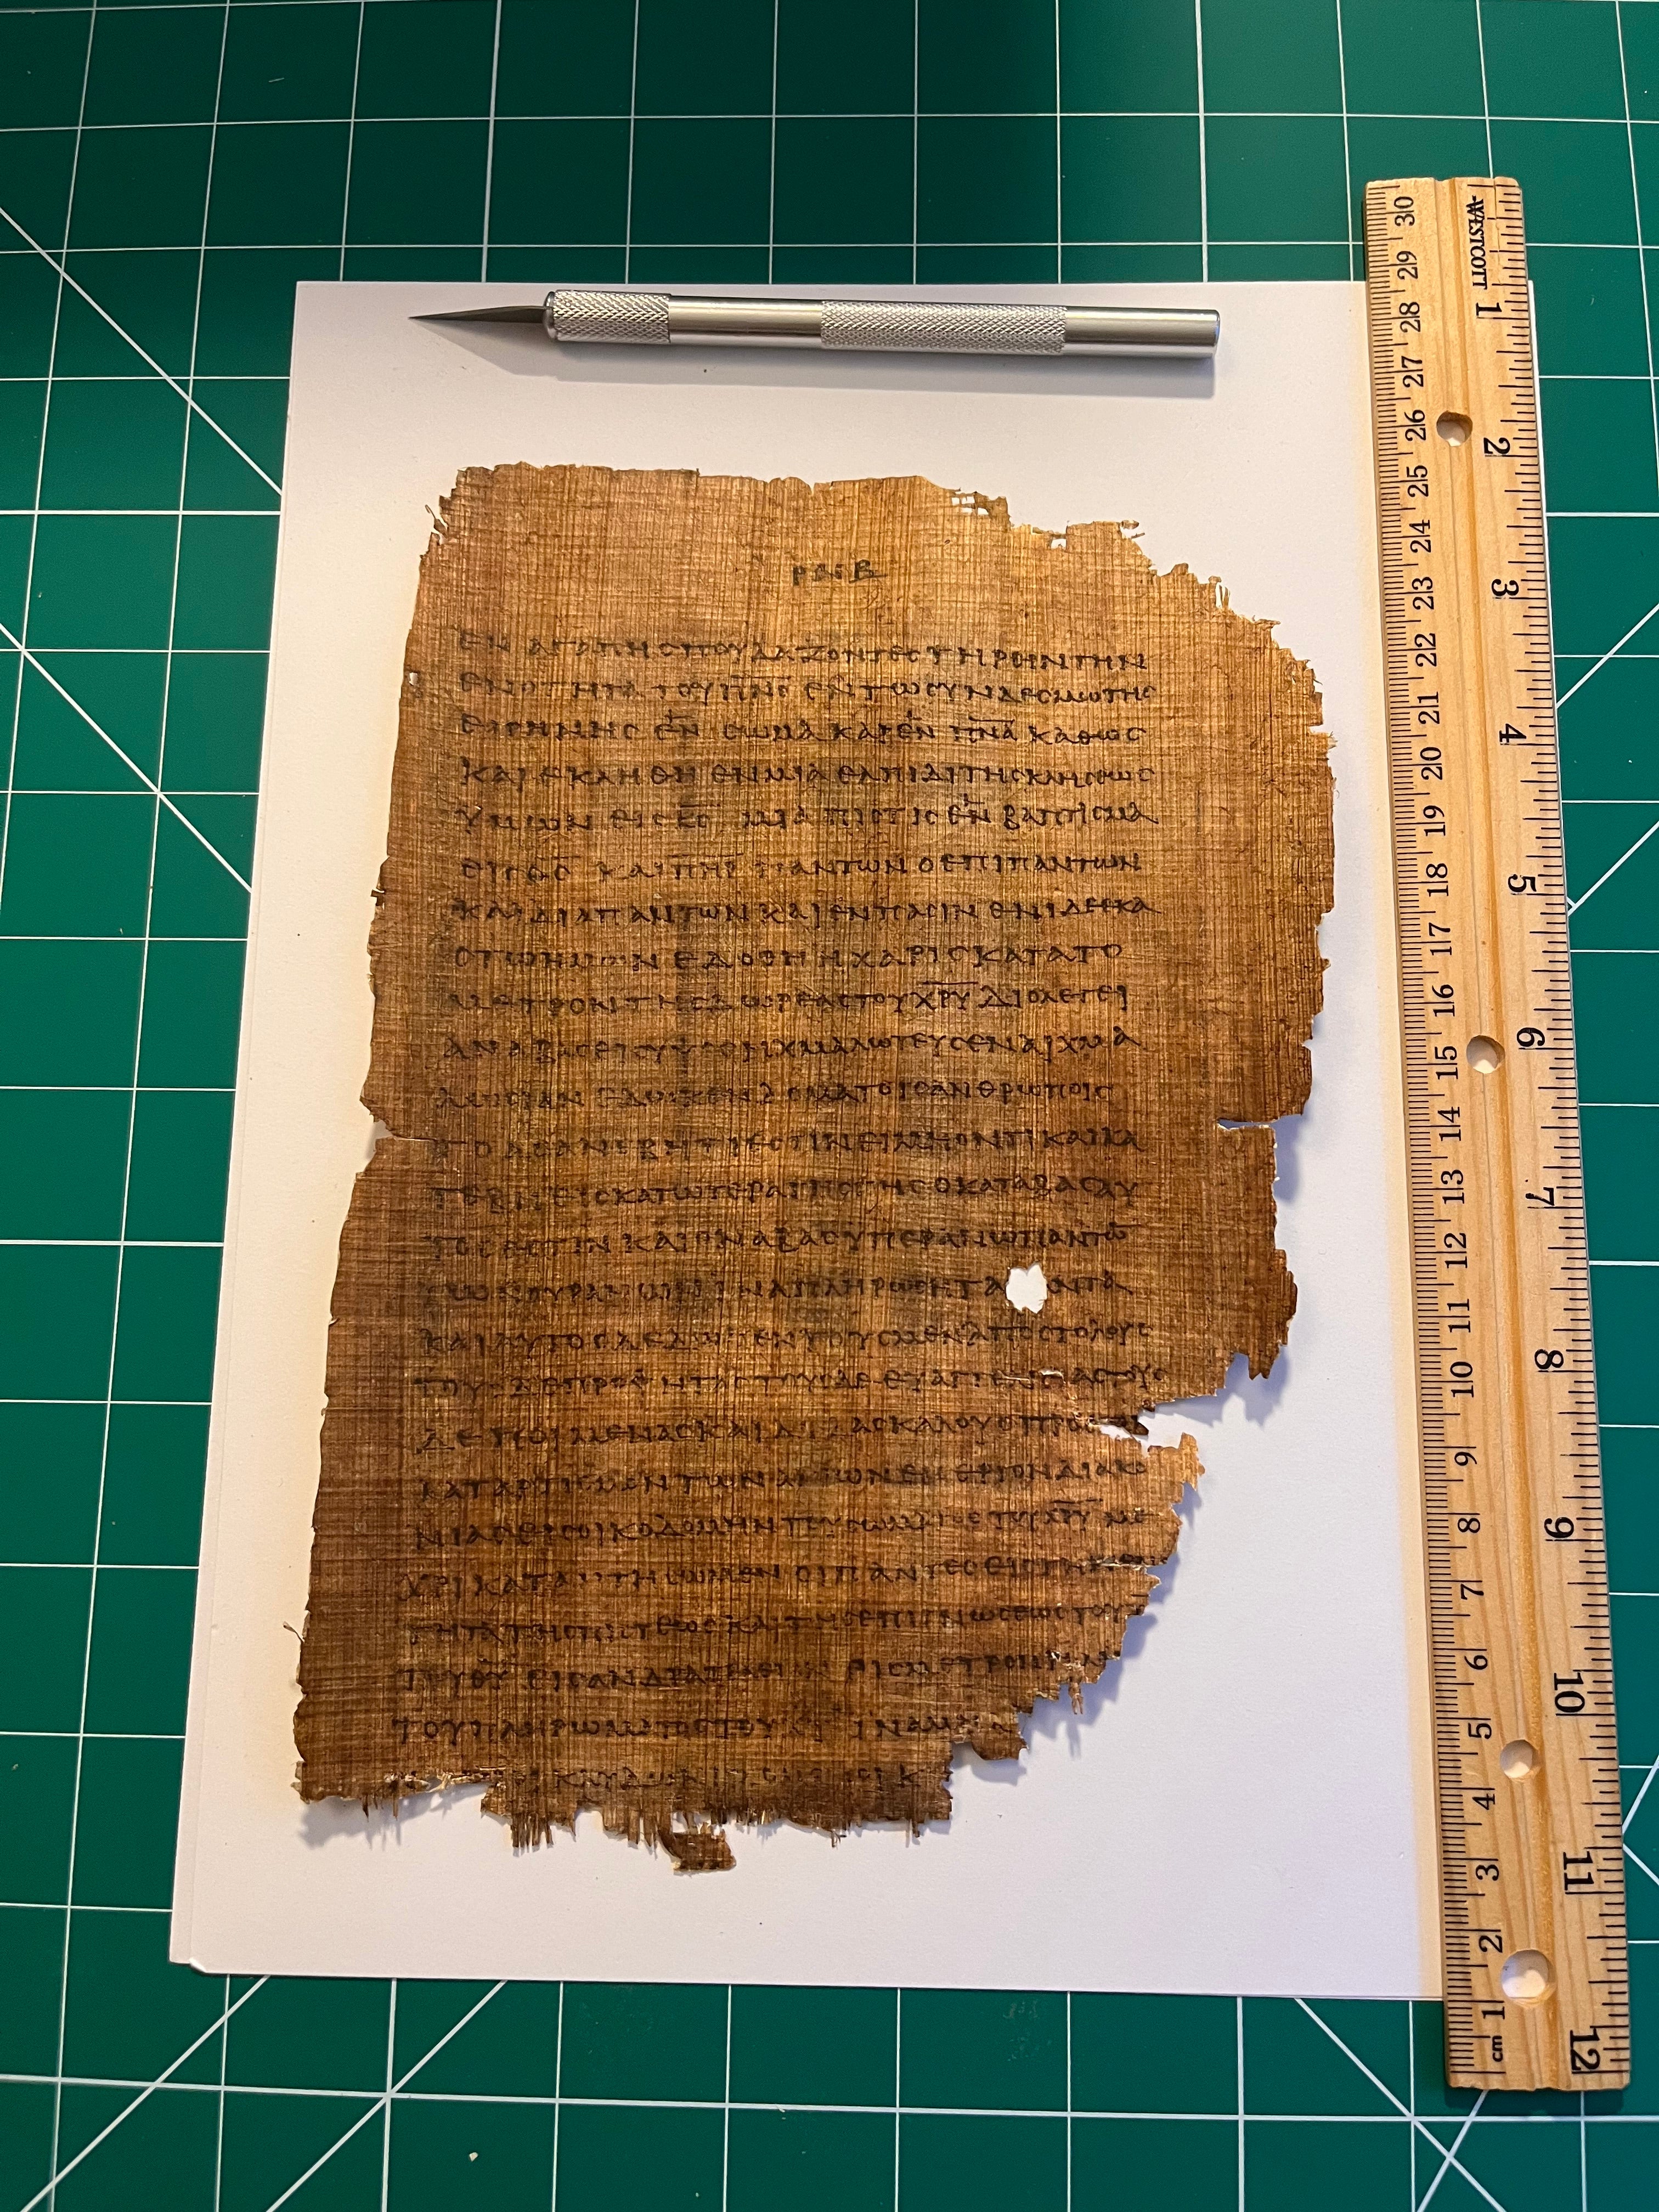 ΡΝΒ
ΕΝ ΑΓΑΠΗ ϹΠΟΥΔΑΖΟΝΤΕϹ ΤΗΡΕΙΝ ΤΗΝ
ΕΝΟΤΗΤΑ ΤΟΥ Π̅Ν̅Ϲ̅ ΕΝ ΤΩ ϹΥΝΔΕϹΜΩ ΤΗϹ
ΕΙΡΗΝΗϹ ΕΝ ϹΩΜΑ ΚΑΙ ΕΝ Π̅Ν̅Α̅ ΚΑΘΩϹ
ΚΑΙ ΕΚΛΗΘΗ ΕΝ ΜΙΑ ΕΛΠΙΔΙ ΤΗϹ ΚΛΗϹΕΩϹ
ΥΜΩΝ ΕΙϹ Κ̅Ϲ̅ ΜΙΑ ΠΙϹΤΙϹ ΕΝ ΒΑΠΤΙϹΜΑ
ΕΙϹ Θ̅Ϲ̅ ΚΑΙ Π̅Η̅Ρ̅ ΠΑΝΤΩΝ Ο ΕΠΙ ΠΑΝΤΩΝ
ΚΑΙ ΔΙΑ ΠΑΝΤΩΝ ΚΑΙ ΕΝ ΠΑϹΙΝ ΕΝΙ ΔΕ ΕΚΑ
ϹΤΩ ΗΜΩΝ ΕΔΟΘΗ Η ΧΑΡΙϹ ΚΑΤΑ ΤΟ
ΜΕΤΡΟΝ ΤΗϹ ΔΩΡΕΑϹ ΤΟΥ Χ̅Ρ̅Υ̅ ΔΙΟ ΛΕΓΕΙ
ΑΝΑΒΑϹ ΕΙϹ ΥΨΟϹ ΗΧΜΑΛΩΤΕΥϹΕΝ ΑΙΧΜΑ
ΛΩϹΙΑΝ ΕΔΩΚΕΝ ΔΟΜΑΤΑ ΤΟΙϹ ΑΝΘΡΩΠΟΙϹ
ΤΟ ΔΕ ΑΝΕΒΗ ΤΙ ΕϹΤΙΝ ΕΙ ΜΗ ΟΝΤΙ ΚΑΙ ΚΑ
ΤΕΒΗ ΕΙϹ ΚΑΤΩΤΕΡΑ ΤΗϹ ΓΗϹ Ο ΚΑΤΑΒΑϹ ΑΥ
ΤΟϹ ΕϹΤΙΝ ΚΑΙ Ο ΑΝΑΒΑϹ ΥΠΕΡΑΝΩ ΠΑΝΤΩ̅
ΤΩΝ ΟΥΡΑΝΩΝ ΙΝΑ ΠΛΗΡΩϹΗ ΤΑ ΑΝΤΑ
ΚΑΙ ΑΥΤΟϹ ΔΕΔΩΚΕΝ ΤΟΥϹ ΜΕΝ ΑΠΟϹΤΟΛΟΥϹ
ΤΟΥϹ ΔΕ ΠΡΟΦΗΤΑϹ ΤΟΥϹ ΔΕ ΕΥΑΓΓΕΛΙϹΤΑϹ ΤΟΥϹ
ΔΕ ΠΟΙΜΕΝΑϹ ΚΑΙ ΔΙΔΑϹΚΑΛΟΥϹ ΠΡΟϹ
ΚΑΤΑΡΤΙϹΜΟΝ ΤΩΝ ΑΓΙΩΝ ΕΙϹ ΕΡΓΟΝ ΔΙΑΚΟ
ΝΙΑϹ ΕΙϹ ΟΙΚΟΔΟΜΗΝ ΤΟΥ ϹΩΜΑΤΟϹ ΤΟΥ Χ̅Ρ̅Υ̅ ΜΕ
ΧΡΙ ΚΑΤΑΝΤΗϹΩΜΕΝ ΟΙ ΠΑΝΤΕϹ ΕΙϹ ΤΗΝ
ΤΗΤΑ ΤΗϹ ΠΙϹΤΕΩϹ ΚΑΙ ΤΗϹ ΕΠΙΓΝΩϹΕΩϹ ΤΟΥ
ΤΟΥ Θ̅Υ̅ ΕΙϹ ΑΝΔΡΑ ΤΕΛΕΙΟΝ ΕΙϹ ΜΕΤΡΟΝ
ΤΟΥ ΠΛΗΡΩΜΑΤΟϹ ΤΟΥ ΙΝΑ ΜΗ
WESTCOTT
1 2 3 4 5 6 7 8 9 10 11 12
30 29 28 27 26 25 24 23 22 21 20 19 18 17 16 15 14 13 12 11 10 9 8 7 6 5 4 3 2 1 cm